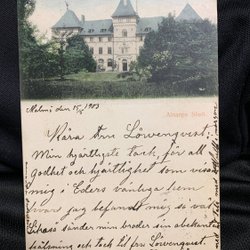 Alnarps Slott.
Malmö den 15/8 1903
Kära Fru Löwenqvist!
Min hjärtligste tack, för all
Godhet och hjärtlighet som visats
mig i Eders vänliga hem
hvar jag befand mig så väl
sänder min broder sin obekanta
hälsning och tack till Fru Löwenqvist.